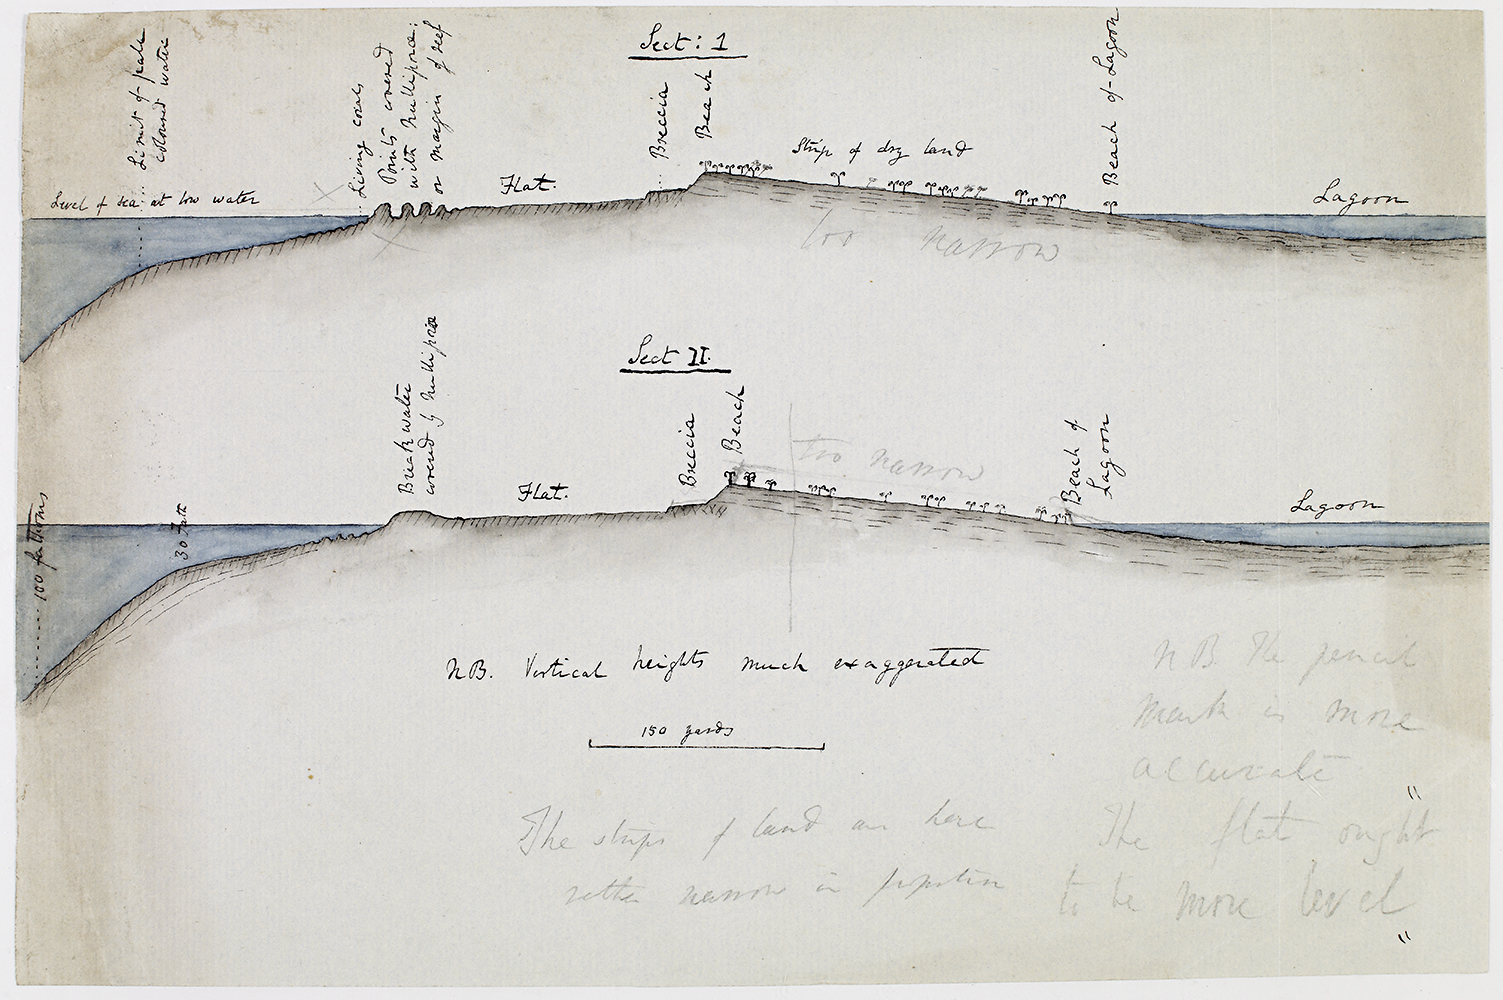 Sect: 1
Limit of pale
coloured water
Living corals
Points covered
with Nulliporæ:
or margin of reef
Breccia
Beach
Beach of Lagoon
Strip of dry land
Level of sea at low water
Flat.
Lagoon
too narrow
Sect II.
Breakwater
covered by Nulliporæ
Breccia
Beach
too narrow
Beach of
Lagoon
Flat.
Lagoon
100 fathoms
30 Fath
NB. Vertical heights much exaggerated
150 yards
NB. The pencil
mark is more
accurate
The strips of land are here
rather narrow in proportion
"
The flat ought
to be more level
"